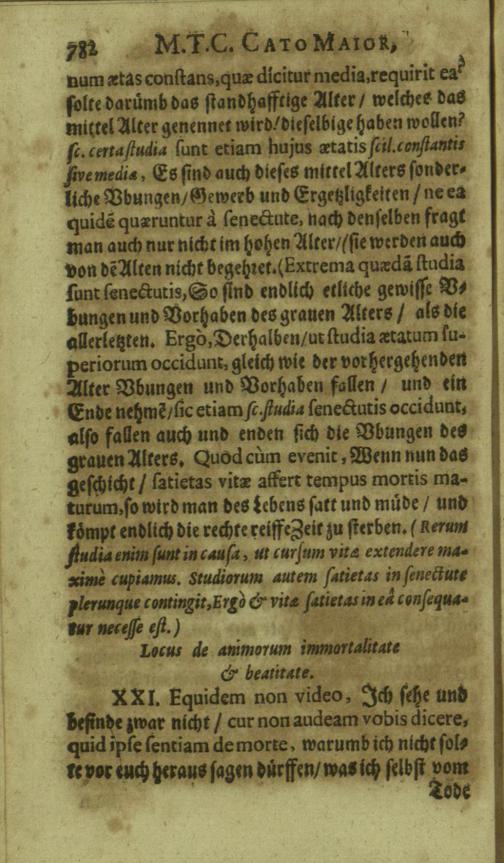 782 M.T.C. CATO MAIOR,
num ætas constans, quæ dicitur media, requirit ea?
solte darümb das standhafftige Alter / welches das
mittel Alter genennet wird / dieselbige haben wollen?
sc. certa studia sunt etiam hujus ætatis scil. constantis
sive mediæ, Es sind auch dieses mittel Alters sonder-
liche Vbungen / Gewerb und Ergetzligkeiten / ne ea
quidē quæruntur à senectute, nach denselben fragt
man auch nur nicht im hohen Alter / (sie werden auch
von dē Alten nicht begehret. (Extrema quædā studia
sunt senectutis, So sind endlich etliche gewisse V-
bungen und Vorhaben des grauen Alters / als die
allerletzten. Ergò, Derhalben / ut studia ætatum su-
periorum occidunt, gleich wie der vorhergehenden
Alter Vbungen und Vorhaben fallen / und ein
Ende nehmē / sic etiam sc. studia senectutis occidunt,
also fallen auch und enden sich die Vbungen des
grauen Alters. Quod cùm evenit, Wenn nun das
geschicht / satietas vitæ affert tempus mortis ma-
turum, so wird man des Lebens satt und müde / und
kömpt endlich die rechte reiffe Zeit zu sterben. (Rerum
studia enim sunt in causa, ut cursum vitæ extendere ma-
ximè cupiamus. Studiorum autem satietas in senectute
plerunque contingit, Ergò & vitæ satietas in eâ consequa-
tur necesse est.)
Locus de animorum immortalitate
& beatitate.
XXI. Equidem non video, Ich sehe und
befinde zwar nicht / cur non audeam vobis dicere,
quid ipse sentiam de morte, warumb ich nicht sol-
te vor euch heraus sagen dürffen / was ich selbst vom
Tode